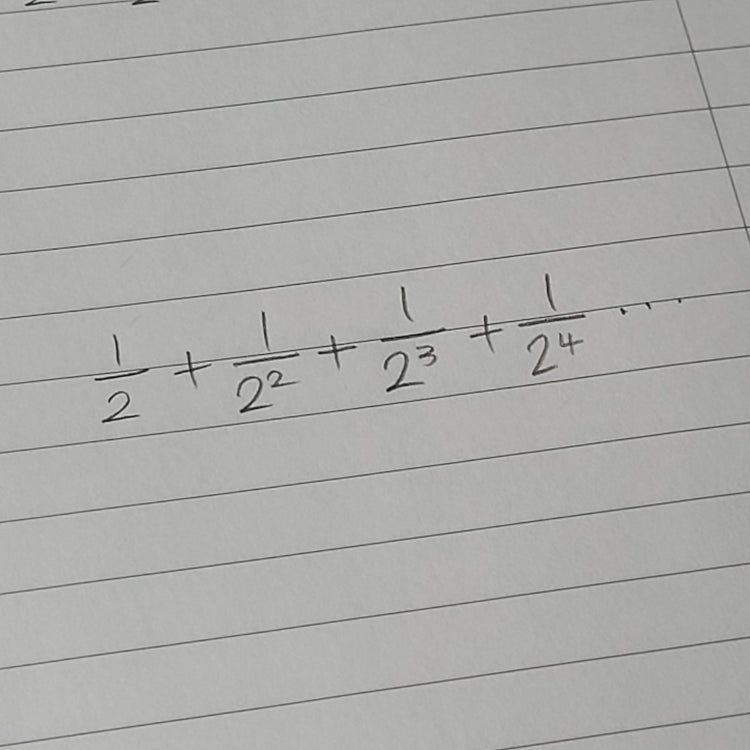 1/2 + 1/2² + 1/2³ + 1/2⁴ ...